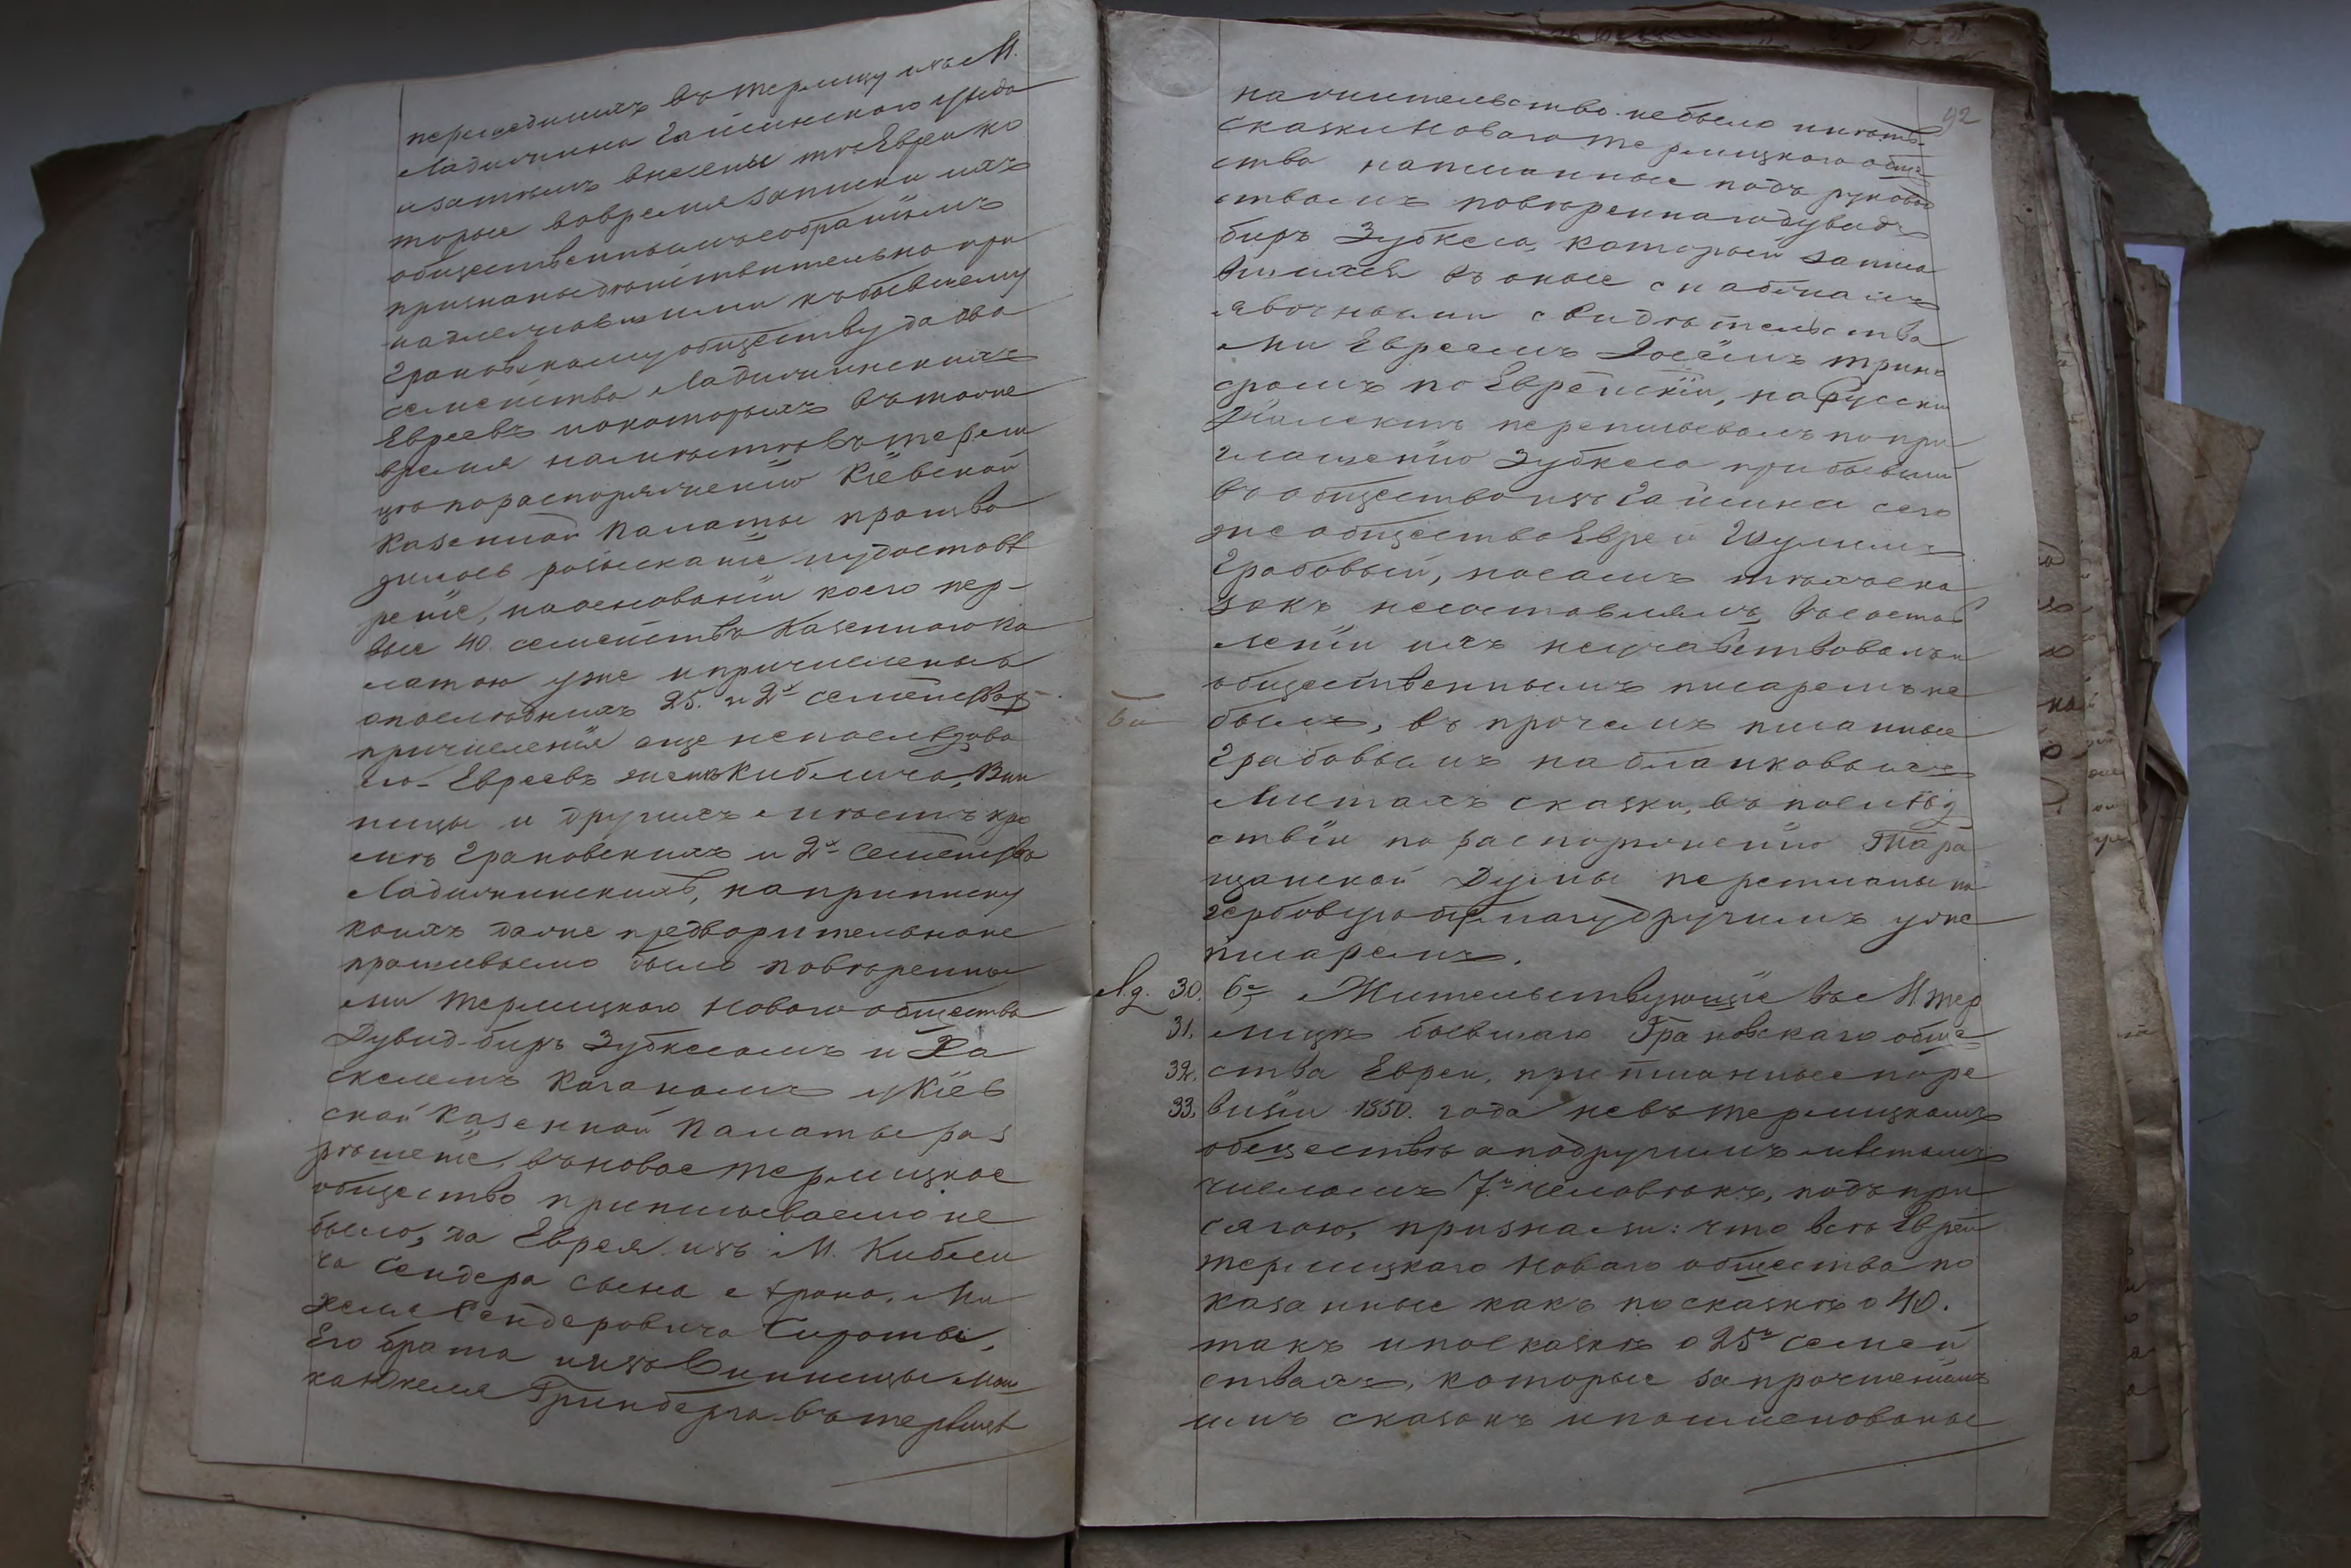 перешедшихъ въ Терлицу изъ М.
Ладижина Гайсинскаго уѣзда
и затѣмъ внесены тѣ Евреи ко
торые вовремя записки ихъ
общественнымъ собраніемъ
признаны дѣйствительно при
надлежавшими къ бывшему
Грановскому обществу да два
семейства Ладижинскихъ
Евреевъ о которыхъ въ тоже
время на мѣстѣ въ Терли
цѣ по распоряженію Кіевской
Казенной Палаты произво
дилось розысканіе и удостовѣ
реніе, на основаніи коего пер-
вые 40. семействъ Казенною Па
латою уже и причислены а
о послѣднихъ 25. и 2хъ семействахъ
причисленія еще не послѣдова
ло. Евреевъ же изъ Киблича, Вин
ницы и другихъ мѣстъ кро
мѣ Грановскихъ и 2хъ семейства
Ладижинскихъ, на приписку
коихъ даже предварительно не
прошиваемо было повѣренны
ми Терлицкого Новаго общества
Дувид-биръ Зубкисомъ и Ха
скелемъ Каганомъ у Кіев
ской Казенной Палаты раз
рѣшеніе, въ новое Терлицкое
общество приписываемо не
было, да Еврея изъ М. Кибли
ча Сендера сына Арона, Ми
хеля Сендеровича Сироты,
Его брата и изъ Винницы Мош
ка Юкеля Гринберга въ Терлицѣ
92
на жительство не было и нѣтъ.
Сказки Новаго Терлицкого обще
ства написанные подъ руковод
ствомъ повѣреннаго Дувидъ
биръ Зубкиса, который записа
вшихся въ оные снабжалъ
явочными свидѣтельства
ми Евреемъ Іосёмъ Трин
сромъ по Еврейскіи, на Русскіи
переписывалъ по при
глашенію Зубкиса прибывшій
въ общество изъ Гайсина сего
же общества Еврей Шулимъ
Грабовый, писалъ тѣхъ ска
зокъ не составлялъ, въ состав
леніи ихъ не участвовалъ и
общественнымъ писаремъ не
былъ, въ прочемъ писанные
Грабовымъ на бланковыхъ
листахъ сказки, въ послѣд
ствіи по распоряженію Тара
щанской Думы переписаны на
гербовую бумагу другимъ уже
писаремъ.
Л.д. 30. 6е Жительствующіе въ М. Тер
31. лицѣ бывшаго Грановскаго обще=
32. ства Евреи, приписанные по ре
33. визіи 1850. года не въ Терлицкомъ
обществѣ а по другимъ мѣстамъ
числомъ 7ъ человѣкъ, подъ при
сягою, признали: что всѣ Евреи
Терлицкаго Новаго общества по
казанные какъ по сказкѣ о 40.
такъ и по сказкѣ о 25ъ семей
ствахъ, которые за прочтеніемъ
имъ сказокъ и поименованые